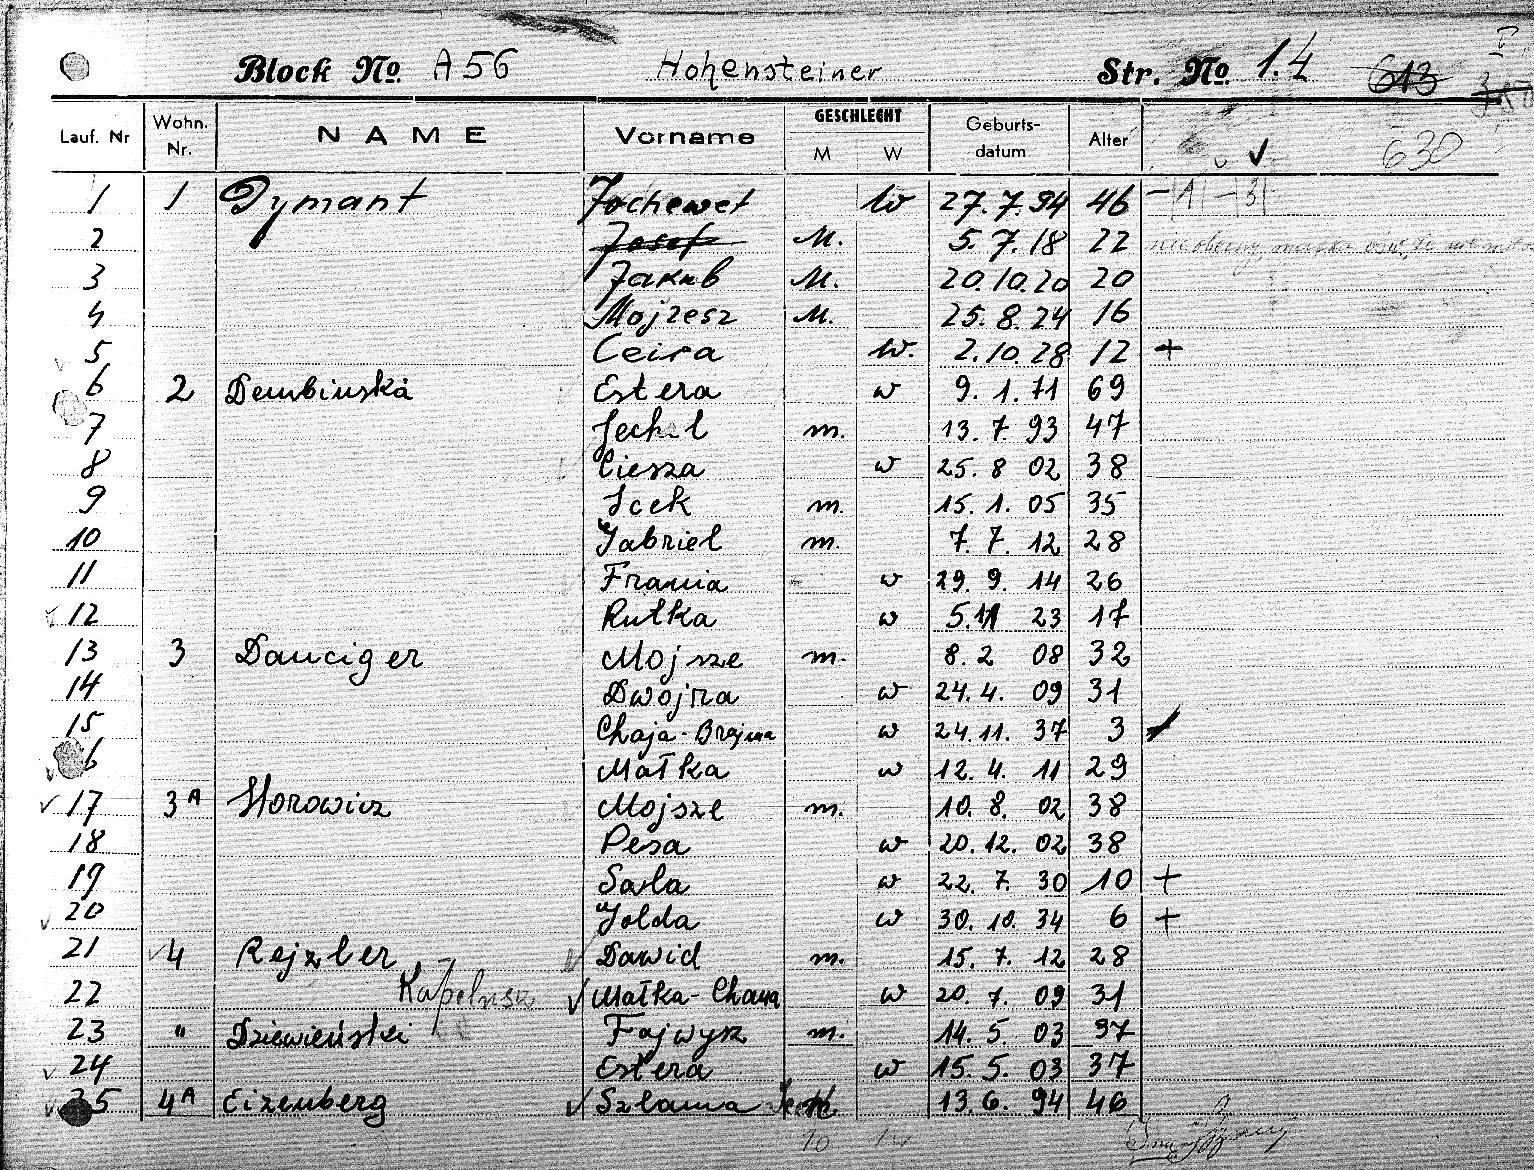 Block No. A56 Hohensteiner Str. No 1.4 613
Lauf. Nr Wohn. Nr. NAME Vorname GESCHLECHT M W Geburts-datum Alter 630
1 1 Dymant Jochewet W 27. 7. 94 46
2 Josef M. 5. 7. 18 22
3 Jakub M. 20. 10. 20 20
4 Mojzesz M. 25. 8. 24 16
5 Ceira W. 2. 10. 28 12 +
6 2 Dembinska Estera w 9. 1. 71 69
7 Jechil m. 13. 7 93 47
8 Ciesza w 25. 8 02 38
9 Icek m. 15. 1. 05 35
10 Gabriel m. 7. 7. 12 28
11 Frania w 29. 9. 14 26
12 Rutka w 5. 11 23 17
13 3 Danciger Mojsze m. 8. 2 08 32
14 Dwojra w 24. 4. 09 31
15 Chaja-Brajna w 24. 11. 37 3 +
6 Małka w 12. 4. 11 29
17 3A Horowicz Mojsze m. 10. 8. 02 38
18 Pesa w 20. 12. 02 38
19 Sala w 22. 7. 30 10 +
20 Golda w 30. 10. 34 6 +
21 4 Rejzler Dawid m. 15. 7. 12 28
22 Małka-Chana w 20. 7. 09 31
23 " Dziewieński Fajwysz m. 14. 5 03 37
24 Estera w 15. 5. 03 37
25 4A Eizenberg Szlama 13. 6. 94 46
10 14